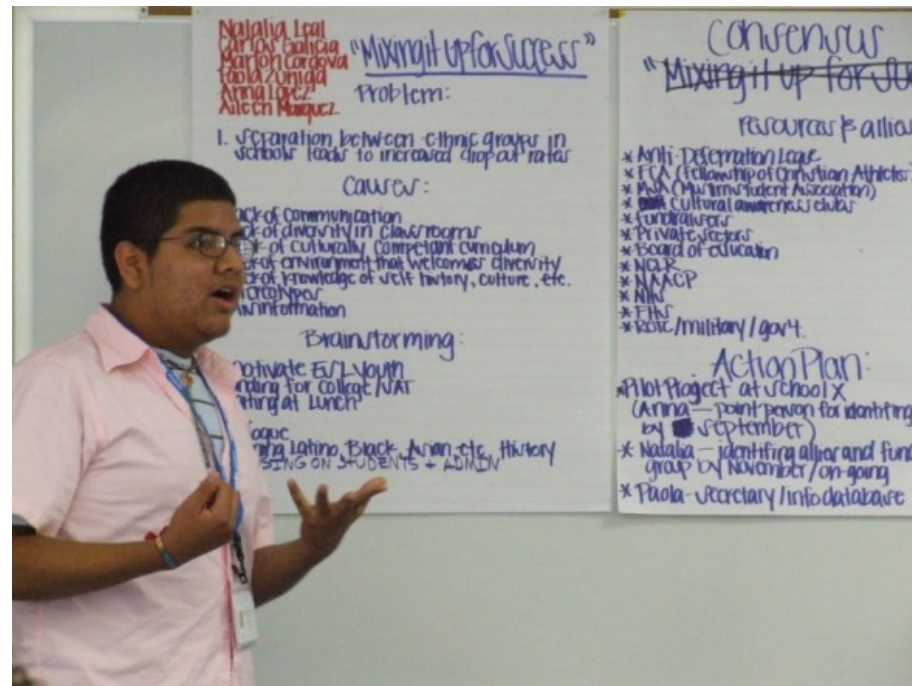 Natalia Leal
Carlos Galicia
Marlon Cordova
Paola Zuniga
Anna Lopez
Aileen Marquez
"Mixing it up for Success"
Problem:
1. Separation between ethnic groups in
schools leads to increased drop out rates
Causes:
ack of communication
k of diversity in classrooms
k of culturally competant curriculum
k of environment that welcomes diversity
k of knowledge of self history, culture, etc.
ereotypes
isinformation
Brainstorming:
otivate ESL youth
nding for college/SAT
tting at Lunch
logue
ning Latino, Black, Asian, etc. History
SING ON STUDENTS + ADMIN
Consensus
"Mixing it up for Suc
resources & allies
* Anti-Defemation Leaque
* FCA (Fellowship of Christian Athletes)
* MSA (Muslim student Association)
* cultural awareness clubs
* fundraisers
* Private sectors
* Board of education
* NCLR
* NAACP
* NIN
* FHS
* ROTC/military/gov't.
Action Plan:
* Pilot Project at school X
(Anna — point person for identifing
by september)
* Natalia — identifing allies and fund
group by November/on-going
* Paola - secretary/info database